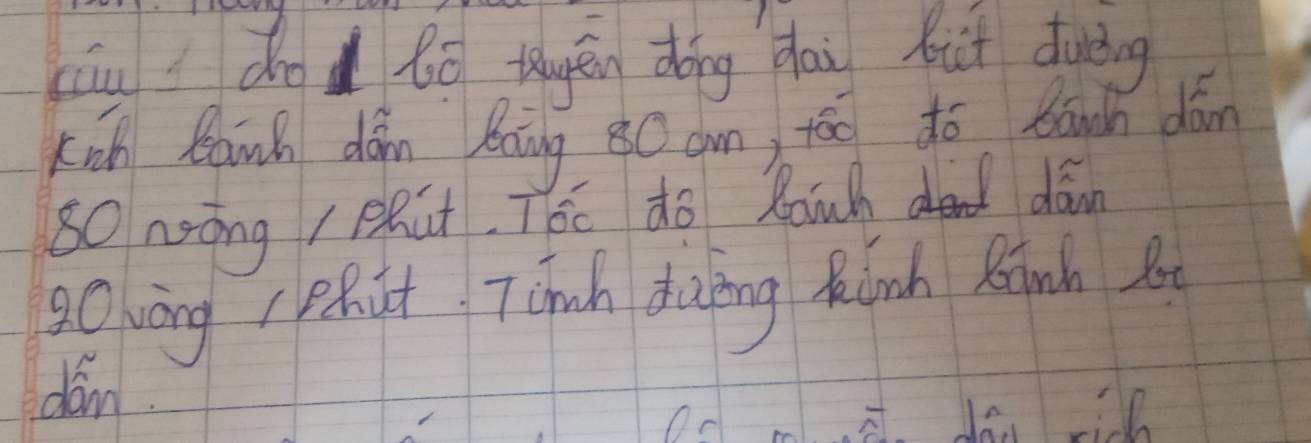 câu 1 cho 1 bộ truyền động đai biết đường
kính bánh dẫn bằng 80 cm, tốc độ bánh dẫn
80 vòng / phút. Tốc độ bánh dẫn
20 vòng / phút. Tính đường kính bánh bị
dẫn.